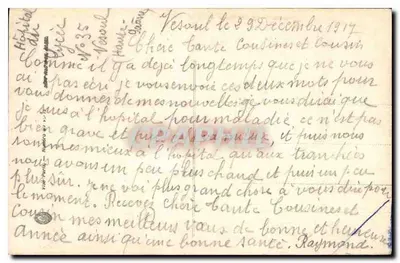 Vesoul le 29 Décembre 1917
Chère Tante Cousines et Cousin
Comme il y a dejà longtemps que je ne vous
ai pas écrit je vous envoie ces deux mots pour
vous donner de mes nouvelles je vous dirai que
je suis à l'hopital pour maladie ce n'est pas
bien grave et puis nous
sommes mieux à l'hopital qu'aux tranchées
nous avons un peu plus chaud et puis un peu
plus sûr. je ne vois plus grand chose à vous dire pour
le moment. Recevez chère Tante Cousines et
Cousin mes meilleurs vœux de bonne et heureuse
année ainsi qu'une bonne santé. Raymond.
Hôpital
du
Lycée
No 35
Vesoul
Haute-
Saône